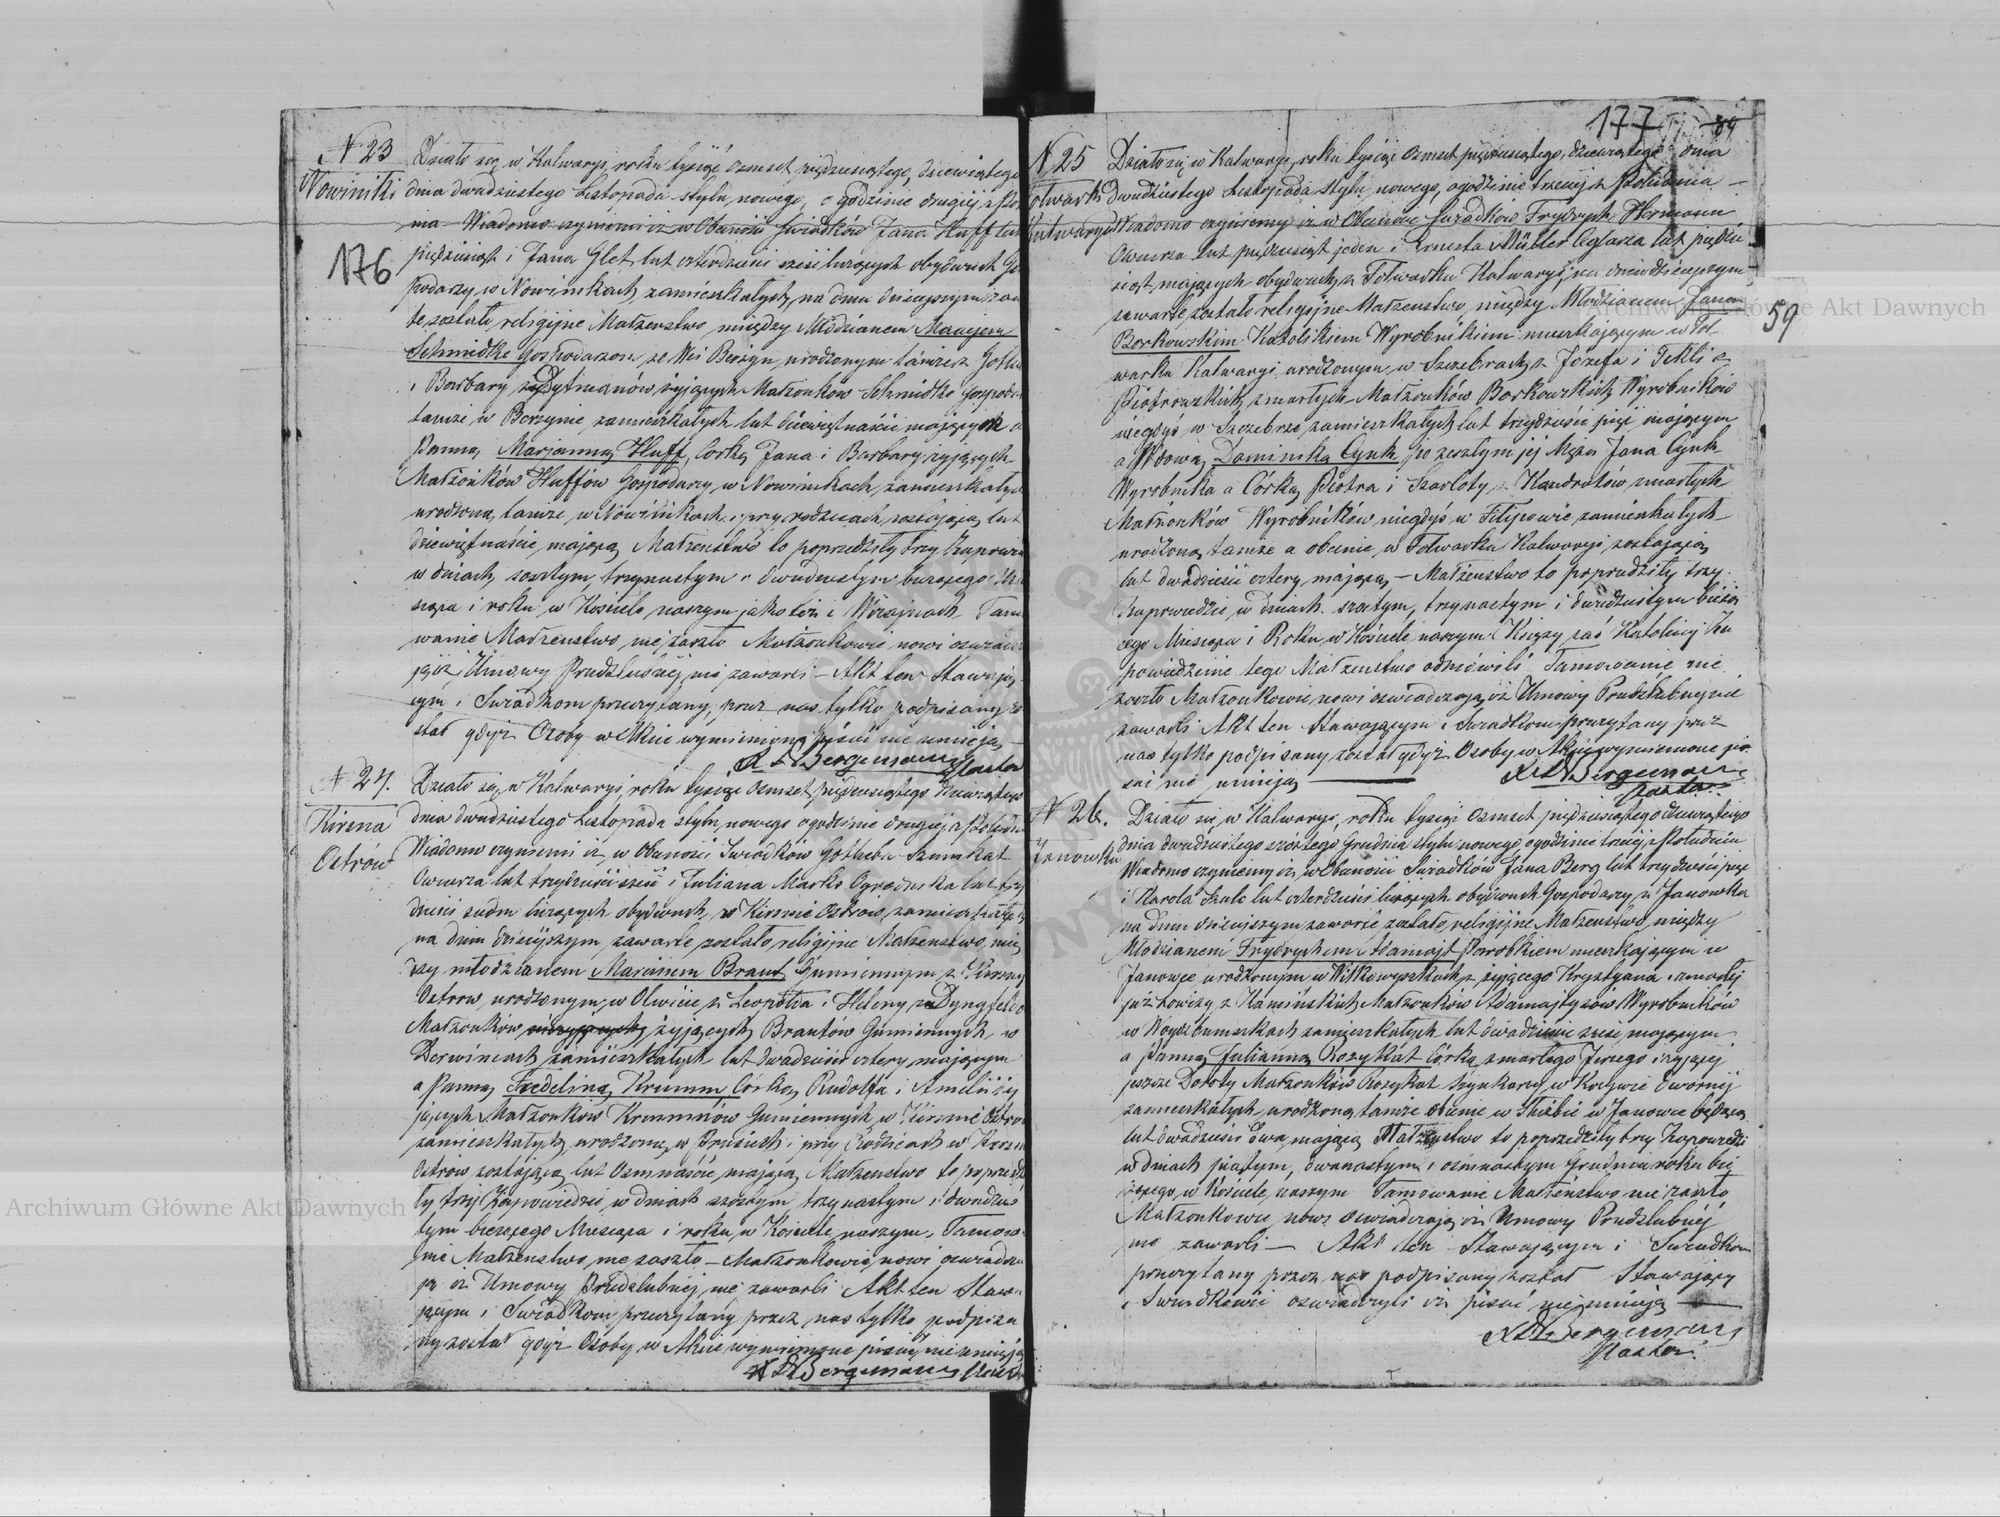 176
N 23
Nowiniki
Działo się w Kalwaryi, roku tysiąc osmset pięćdziesiątego dziewiątego
dnia dwudziestego Listopada stylu nowego, o godzinie drugiej z Połu
nia Wiadomo czyniemi iż w Obecności Swiadków Jana Huff lat
pięćdziesiąt i Jana Glet lat czterdzieści sześć liczących obydwóch Go
podarzy w Nowinikach zamieszkałych, na dniu dzisiejszym zawar
te zostało religijne Małżenstwo, między Młodzianem Maciejem
Schmidtke Gospodarzem ze Wsi Berzyn, urodzonym tamże z Gottli
i Barbary Małżonków Schmidke Gospoda
tamże w Berzynie zamieszkałych lat dziewiętnaście mającym a
Panną Marjanną Huff, Córką Jana i Barbary żyjących
Małżonków Huffów Gospodarzy w Nowinikach zamieszkałych
urodzoną tamże w Nowinikach i przy rodzicach zostającą lat
dziewiętnaście mającą Małżenstwo to poprzedziły trzy Zapowie
w dniach szóstym, trzynastym i dwudziestym bieżącego Mie
siąca i roku w Kościele naszym jako też i Wiżajnach Tamo
wanie Małżenstwo nie zaszło Małżonkowie nowi oswiadcza
ją iż Umowy Przedślubnéj nie zawarli – Akt ten Stawają
cym i Swiadkom przeczytany, przez nas tylko podpisany zo
stał gdyż Osoby w Akcie wymienione pisać nie umieją
Bergemann Pastor
N 24.
Kirsna
Ostrów
Działo się w Kalwaryi, roku tysiąc osmset pięćdziesiątego dziewiątego
dnia dwudziestego Listopada stylu nowego o godzinie drugiej z Południa
Wiadomo czyniemi iż w Obecności Swiadków Gottlieba Szunkat
Owczarza lat trzydzieści sześć i Juliana Marks Ogrodnika lat trzy
dzieści siedm liczących obydwóch, w Kirsnie Ostrów zamieszkałych
na dniu dzisiejszym zawarte zostało religijne Małżenstwo mię
dzy młodzianem Marcinem Braut Gumiennym z Kirsny
Ostrow urodzonym w Oliwicie z Leopolda i Heleny z
Małżonków żyjących Brautów Gumiennych, w
Derwincach zamieszkałych lat dwadzieścia cztery mającym
a Panną Fredeliną Krumm Córką Rudolfa i Amelii ży
jących Małżonków Krummów Gumiennych w Kirsnie Ostrow
zamieszkałych, urodzoną w Prusiech i przy Rodzicach w Kirsnie
Ostrów zostającą lat Osmnaście mającą Małżenstwo to poprzedzi
ły trzy Zapowiedzie w dniach szóstym, trzynastym i dwudzies
tym bieżącego Miesiąca i roku w Kościele naszym, Tamowa
nie Małżenstwo nie zaszło – Małżonkowie nowi oswiadcza
ją iż Umowy Przedślubnéj nie zawarli Akt ten Stawa
jącym i Swiadkom przeczytany przez nas tylko podpisa
ny został gdyż Osoby w Akcie wymienione pisać nie umieją
Bergemann Pastor
177
59
N 25
Folwark
Kalwarya
Działo się w Kalwaryi, roku tysiąc osmset pięćdziesiątego dziewiątego dnia
dwudziestego Listopada stylu nowego, o godzinie trzeciej z Południa –
Wiadomo czyniemy iż w Obecności Swiadków Frydrych Hermann
Owczarza lat pięćdziesiąt jeden i Ernesta Müller Ceglarza lat pięćdzie
siąt mających obydwóch, z Folwarku Kalwaryi, na dniu dzisiejszym
zawarte zostało religijne Małżenstwo, między Młodzianem Janem
Borkowskim Katolikiem Wyrobnikiem mieszkającym w Fol
warku Kalwaryi urodzonym w Szczebrach, z Józefa i Tekli z
Piotrowskich, zmarłych Małżonków Borkowskich Wyrobników
niegdyś w Szczebrze zamieszkałych lat trzydzieści pięć mającym
a Wdową Dominiką Cynk po zeszłym jej Mężu Jana Cynk
Wyrobnika a Córką Piotra i Szarloty z Kundrotów zmarłych
Małżonków Wyrobników niegdyś w Filipowie zamieszkałych
urodzoną tamże a obecnie w Folwarku Kalwaryi zostającą
lat dwadzieścia cztery mającą – Małżenstwo to poprzedziły trzy
Zapowiedzie w dniach szóstym, trzynastym i dwudziestym bieżą
cego Miesiąca i Roku w Kościele naszym Księży zaś Katoliccy Za
powiedzenie tego Małżenstwa odmówili Tamowanie nie
zaszło Małżonkowie nowi oswiadczają iż Umowy Przedślubnéj nie
zawarli Akt ten Stawającym i Swiadkom przeczytany przez
nas tylko podpisany został gdyż Osoby w Akcie wymienione pi
sać nie umieją
Bergemann
Pastor
N 26.
Janówka
Działo się w Kalwaryi, roku tysiąc osmset pięćdziesiątego dziewiątego
dnia dwudziestego szóstego Grudnia stylu nowego, o godzinie trzeciej z Południa
Wiadomo czyniemy iż w Obecności Swiadków Jana Berg lat trzydzieści pięć
i Karola Szulc lat czterdzieści liczących obydwóch Gospodarzy z Janówka
na dniu dzisiejszym zawarte zostało religijne Małżenstwo między
Młodzianem Frydrychem Adamajt Parobkiem mieszkającym w
Janowce urodzonym w Wiłkowyszkach z żyjącego Krystyana i zmarłej
już Lowizy z Kaminskich Małżonków Adamajtysów Wyrobników
w zamieszkałych lat dwadzieścia sześć mającym
a Panną Julianną Rozykat Córką zmarłego Jerzego i żyjącej
jeszcze Doroty Małżonków Rozykat w Dwornéj
zamieszkałych, urodzoną tamże obecnie w Służbie w Janowce będącą
lat dwadzieścia dwa mającą Małżenstwo to poprzedziły trzy Zapowiedzi
w dniach piątym, dwunastym i osmnastym Grudnia roku bie
żącego, w Kościele naszym Tamowanie Małżenstwo nie zaszło
Małżonkowie nowi oswiadczają iż Umowy Przedślubnéj
nie zawarli – Akt ten Stawającym i Swiadkom
przeczytany przez nas podpisany został Stawający
i Swiadkowie oswiadczyli iż pisać nie umieją –
Bergemann
Pastor
Archiwum Główne Akt Dawnych
Archiwum Główne Akt Dawnych